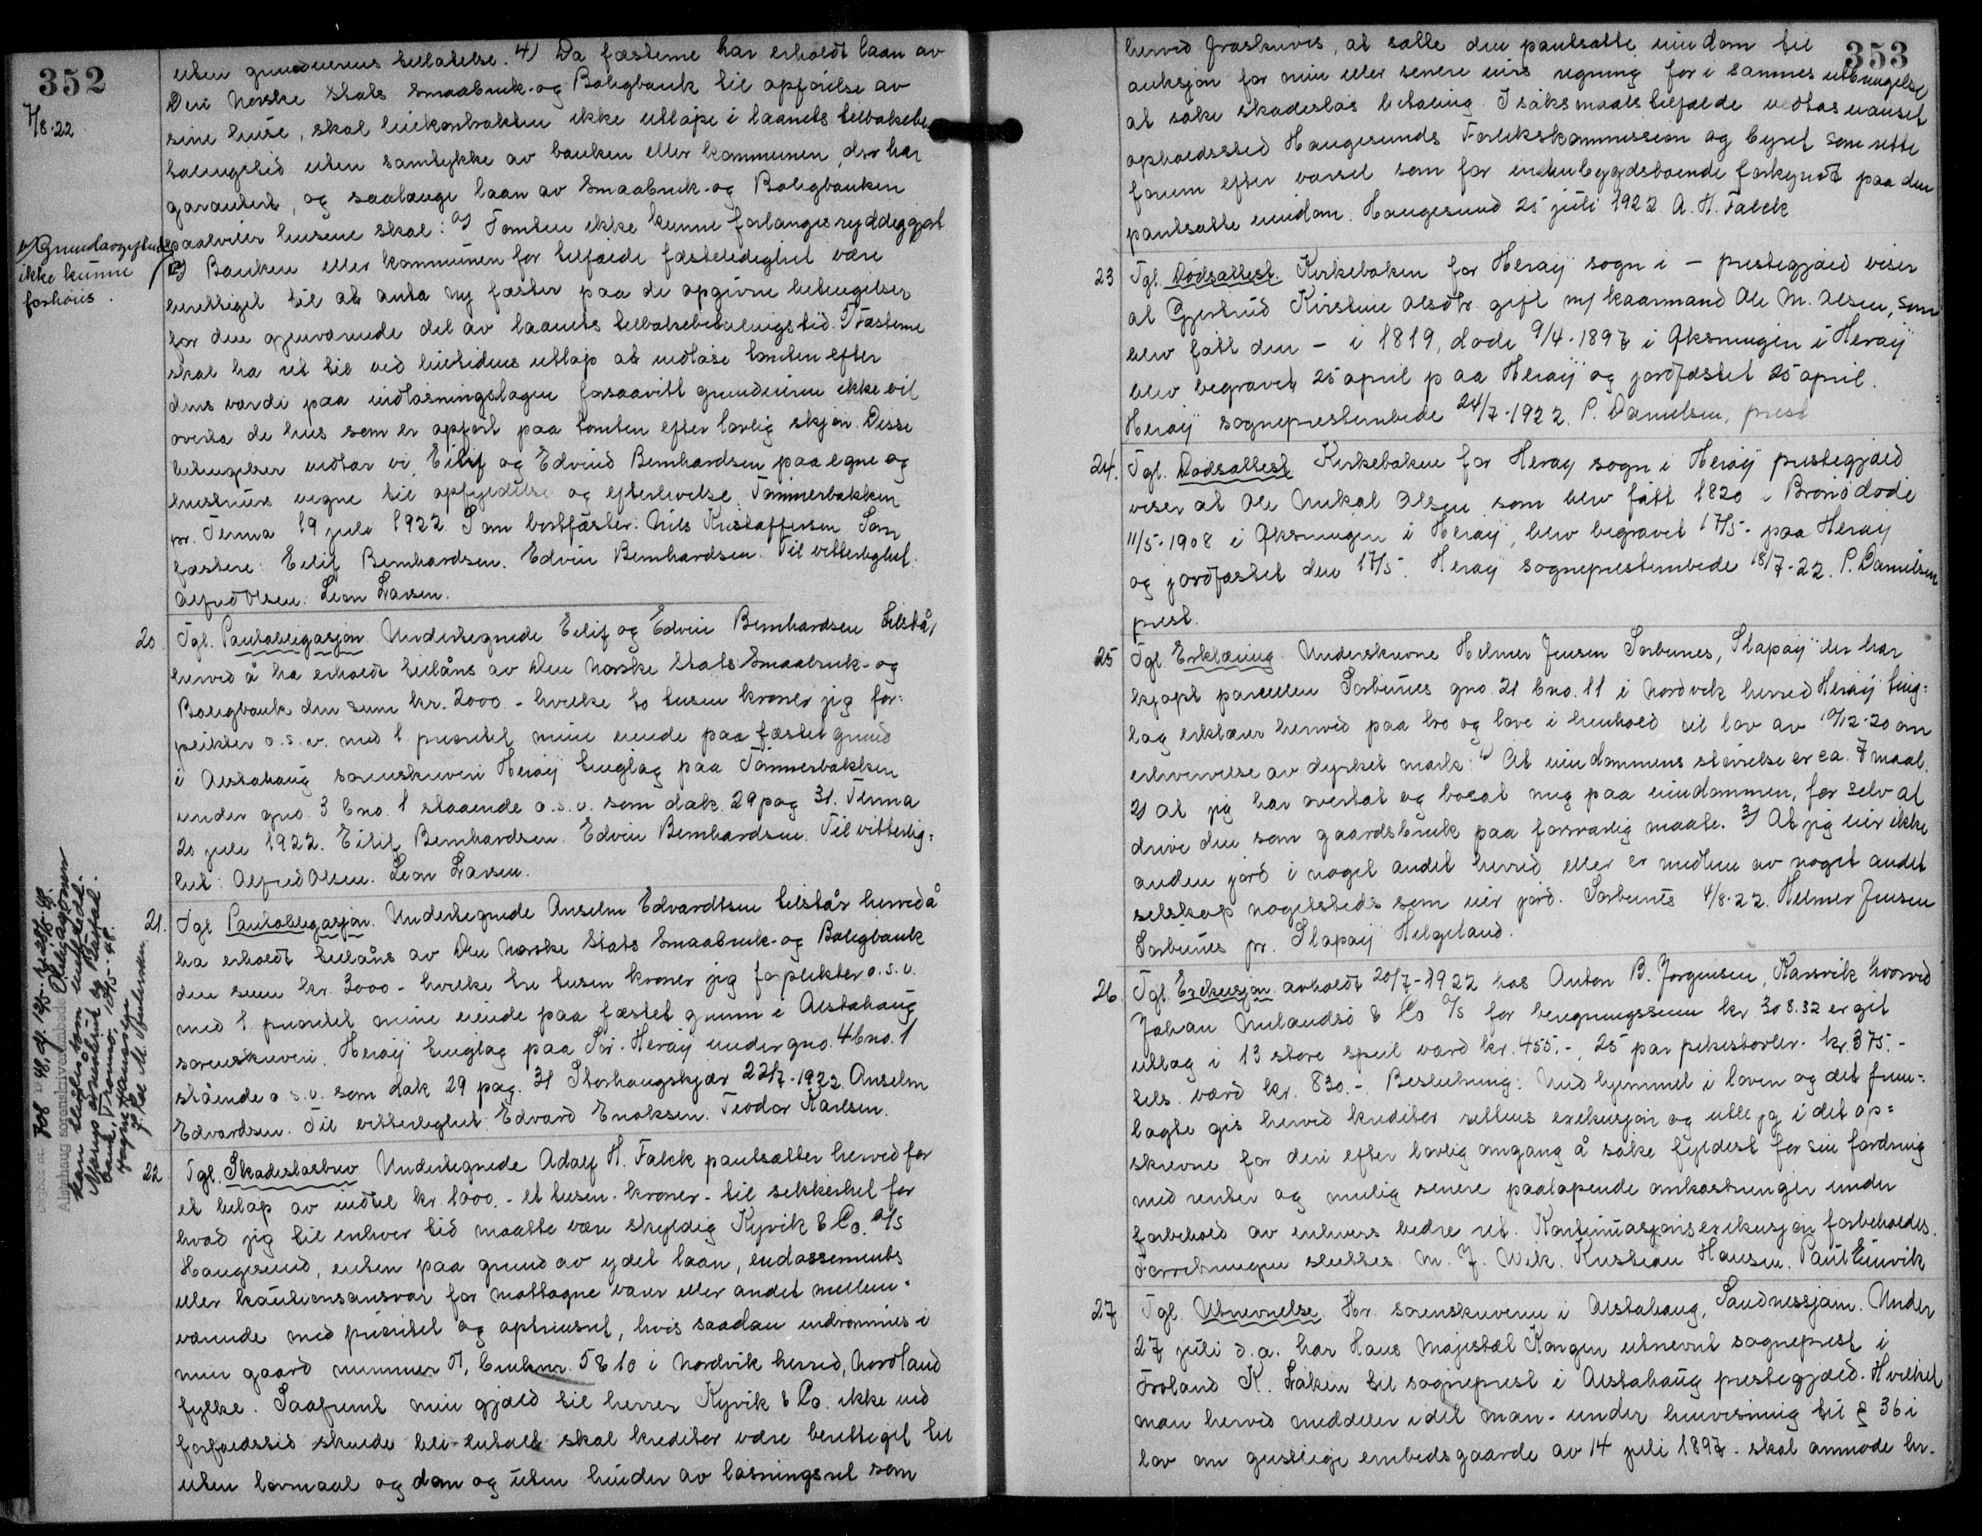 352
7/8-22
uten grundeierens tillatelse. 4) Da fæsterne har erholdt laan av
Den Norske Stats Smaabruk- og Boligbank til opførelse av
sine huse, skal leiekontrakten ikke utløpe i laanets tilbakebe-
talingstid uten samtykke av banken eller kommunen, der har
garantert, og saalænge laan av Smaabruk- og Boligbanken
paahviler husene skal: a) Tomten ikke kunne forlanges ryddiggjort
1) Grundavgiften
ikke kunne
forhøies.
b) Banken eller kommunen for tilfælde fæsteledighet være
berettiget til at anta ny fæster paa de opgivne betingelser
for den gjenværende del av laanets tilbakebetalingstid. Fæsterne
skal ha ret til ved leietidens utløp at indløse tomten efter
dens værdi paa indløsningsdagen forsaavitt grundeieren ikke vil
overta de hus som er opført paa tomten efter lovlig skjøn. Disse
betingelser vedtar vi Eilif og Edvind Bernhardsen paa egne og
hustruers vegne til opfyldelse og efterlevelse. Tømmerbakken
pr. Tenna 19 juli 1922 Som bortfæster: Nils Kristoffersen Som
fæstere: Eilif Bernhardsen. Edvin Bernhardsen. Til vitterlighet:
Alfred Olsen. Leon Larsen.
20 Tgl. Pantobligasjon Undertegnede Eilif og Edvin Bernhardsen tilstår
herved å ha erholdt tillåns av Den Norske Stats Smaabruk- og
Boligbank den sum kr. 2000 - hvilke to tusen kroner jeg for-
plikter o.s.v. med 1 prioritet mine eiende paa fæstet grund
i Alstahaug sorenskriveri Herøy tinglag paa Tømmerbakken
under gno. 3 bno. 1 staaende o.s.v. som dak. 29 pag 31. Tenna
20 juli 1922. Eilif Bernhardsen. Edvin Bernhardsen. Til vitterlig-
het: Alfred Olsen. Leon Larsen.
21. Tgl Pantobligasjon. Undertegnede Anselm Edvardtsen tilstår herved å
ha erholdt tillåns av Den Norske Stats Smaabruk- og Boligbank
den sum kr. 3000 - hvilke tre tusen kroner jeg forplikter o.s.v.
med 1 prioritet mine eiende paa fæstet grunn i Alstahaug
sorenskriveri. Herøy tinglag paa Sør-Herøy under gno. 4 bno. 1
stående o.s.v. som dak 29 pag. 31 Storhaugskjær 22/7-1922 Anselm
Edvardsen. Til vitterlighet: Edvard Enoksen. Teodor Karlsen.
22 Tgl. Skadesløsbrev Undertegnede Adolf H. Falck pantsætter herved for
et beløp av indtil kr 1000.- et tusen kroner - til sikkerhet for
hvad jeg til enhver tid maatte være skyldig Kyvik & Co. A/S
Haugesund, enten paa grund av ydet laan, endossements
eller kautionsansvar for mottagne varer eller andet mellem-
værende med prioritet og optrinsret, hvis saadan indrømmes i
min gaard nummer 51, bruksnr. 5 & 10 i Nordvik herred, Nordland
fylke. Saafremt min gjæld til herrer Kyvik & Co. ikke ved
forfaldstid skulde bli betalt skal kreditor være berettiget til
uten lovmaal og dom og uten hinder av løsningsret som
353
herved fraskrives, at sælge den pantsatte eiendom til
auksjon for min eller senere eiers regning for i sammes utbringelse
at søke skadesløs betaling. I søksmaalstilfælde vedtas uanset
opholdssted Haugesunds Forlikskommission og byret som rette
forum efter varsel som for indenbygdsboende forkyndt paa den
pantsatte eiendom. Haugesund 25 juli 1922 A. H. Falck
23 Tgl. Dødsattest. Kirkeboken for Herøy sogn i - prestegjæld viser
at Gjertrud Kirstine Olsdtr. gift m/ kaarmand Ole M. Olsen, som
blev født den - i 1819, døde 9/4-1897 i Øksningen i Herøy
blev begravet 25 april paa Herøy og jordfæstet 25 april.
Herøy sogneprestembede 24/7-1922. P. Danielsen, prest
24. Tgl. Dødsattest Kirkeboken for Herøy sogn i Herøy prestegjæld
viser at Ole Mikal Olsen som blev født 1820 i Brønø døde
11/5-1908 i Øksningen i Herøy, blev begravet 17/5- paa Herøy
og jordfæstet den 17/5. Herøy sogneprestembede 18/7-22. P. Danielsen
prest.
25 Tgl Erklæring. Underskrevne Helmer Jensen Sørbunes, Slapøy der har
kjøpt parcellen Sørbunes gno. 21 bno. 11 i Nordvik herred Herøy ting-
lag erklærer herved paa tro og love i henhold til lov av 10/12-20 om
erhvervelse av dyrket mark: 1) At eiendommens størrelse er ca. 7 maal.
2) at jeg har overtat og bosat mig paa eiendommen, for selv at
drive den som gaardsbruk paa forsvarlig maate. 3) At jeg eier ikke
anden jord i noget andet herred eller er medlem av noget andet
selskap nogetsteds som eier jord. Sørbunes 4/8-22. Helmer Jensen
Sørbunes pr. Slapøy Helgeland.
26. Tgl Exekusjon avholdt 20/7-1922 hos Anton B. Jørgensen, Karsvik hvorved
Johan & Co A/S for beregningssum kr 308.32 er git
utlæg i 13 store speil værd kr. 455.-, 25 par pikestøvler. kr. 375.-
tils. værd kr. 830.- Beslutning: Med hjemmel i loven og det frem-
lagte gis herved kreditor rettens exekusjon og utlæg i det op-
skrevne for deri efter lovlig omgang å søke fyldest for sin fordring
med renter og mulig senere paaløpende omkostninger under
forbehold av enhvers bedre ret. Kontinuasjonsexekusjon forbeholdes.
Forretningen sluttes. M. J. Wik. Kristian Hansen. Paul Einvik
27 Tgl Utnevnelse Hr. sorenskriveren i Alstahaug, Sandnessjøen. Under
27 juli d.a. har Hans Majestæt Kongen utnevnt sogneprest i
Froland K. Løken til sogneprest i Alstahaug prestegjæld. Hvilket
man herved meddeler idet man - under henvisning til § 36 i
lov om geistlige embedsgaarde av 14 juli 1897 - skal anmode hr.